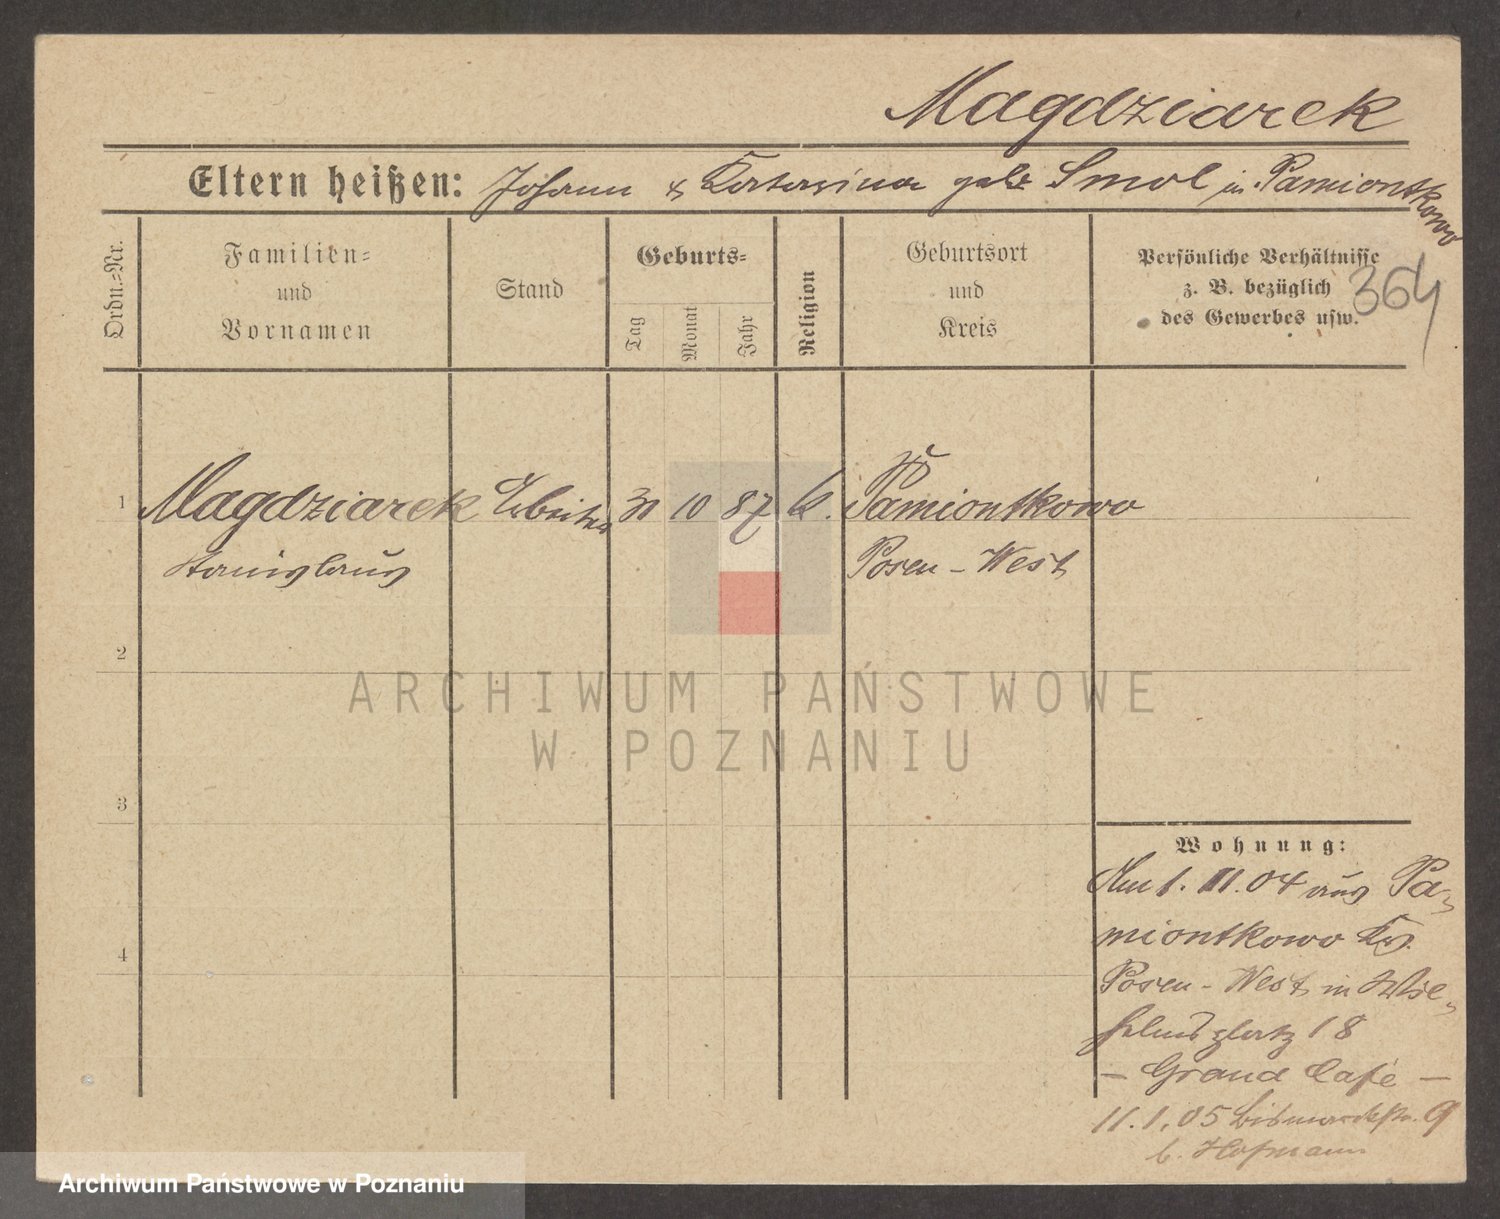 Magdziarek
Eltern heißen: Johann & Katarzina geb. Smol in Pamiontkowo
Ordn.-Nr.
Familien-
und
Vornamen
Stand
Geburts-
Tag
Monat
Jahr
Religion
Geburtsort
und
Kreis
Persönliche Verhältnisse
z. B. bezüglich
des Gewerbes usw.
364
1 Magdziarek Arbeiter 30 10 87 k. Pamiontkowo
Stanislaus Posen-West
2
ARCHIWUM PAŃSTWOWE
W POZNANIU
3
Wohnung:
Am 1. III. 04 aus Pa-
miontkowo Krs.
Posen-West in Wil-
helmsplatz 18
- Grand Café -
4
11.1.05 Bismarckstr. 9
b. Hofmann
Archiwum Państwowe w Poznaniu